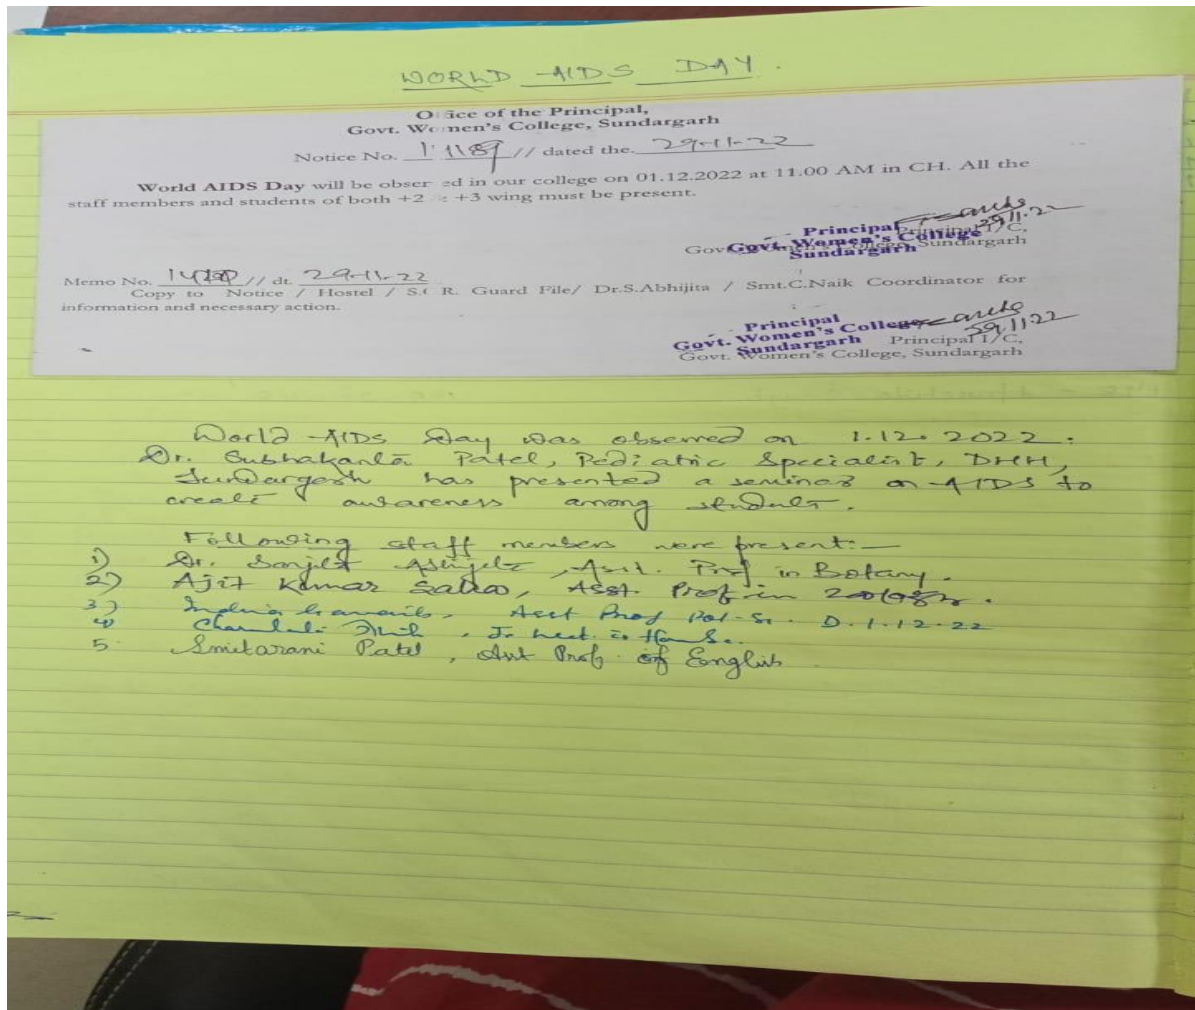 WORLD AIDS DAY.
Office of the Principal,
Govt. Women's College, Sundargarh
Notice No. // dated the. 29-11-22
World AIDS Day will be observed in our college on 01.12.2022 at 11.00 AM in CH. All the
staff members and students of both +2 & +3 wing must be present.
29/11.22
Principal
Principal I/C,
Govt. Women's College
Govt. Women's College, Sundargarh
Sundargarh
Memo No. // dt. 29-11-22
Copy to Notice / Hostel / S.C R. Guard File/ Dr.S.Abhijita / Smt.C.Naik Coordinator for
information and necessary action.
29/11.22
Principal
Govt. Women's College
Sundargarh
Principal I/C,
Govt. Women's College, Sundargarh
World AIDS Day was observed on 1.12.2022.
Dr. Subhakanta Patel, Pediatric Specialist, DHH,
Sundargarh has presented a seminar on AIDS to
create awareness among students.
Following staff members were present:-
1) Dr. , Asst. Prof in Botany.
2) Ajit Kumar Sahoo, Asst. Prof in Zoology.
3) Asst Prof Pol. Sc. D. 1.12.22
4) Naik,
5. Smitarani Patel, Asst Prof. of English